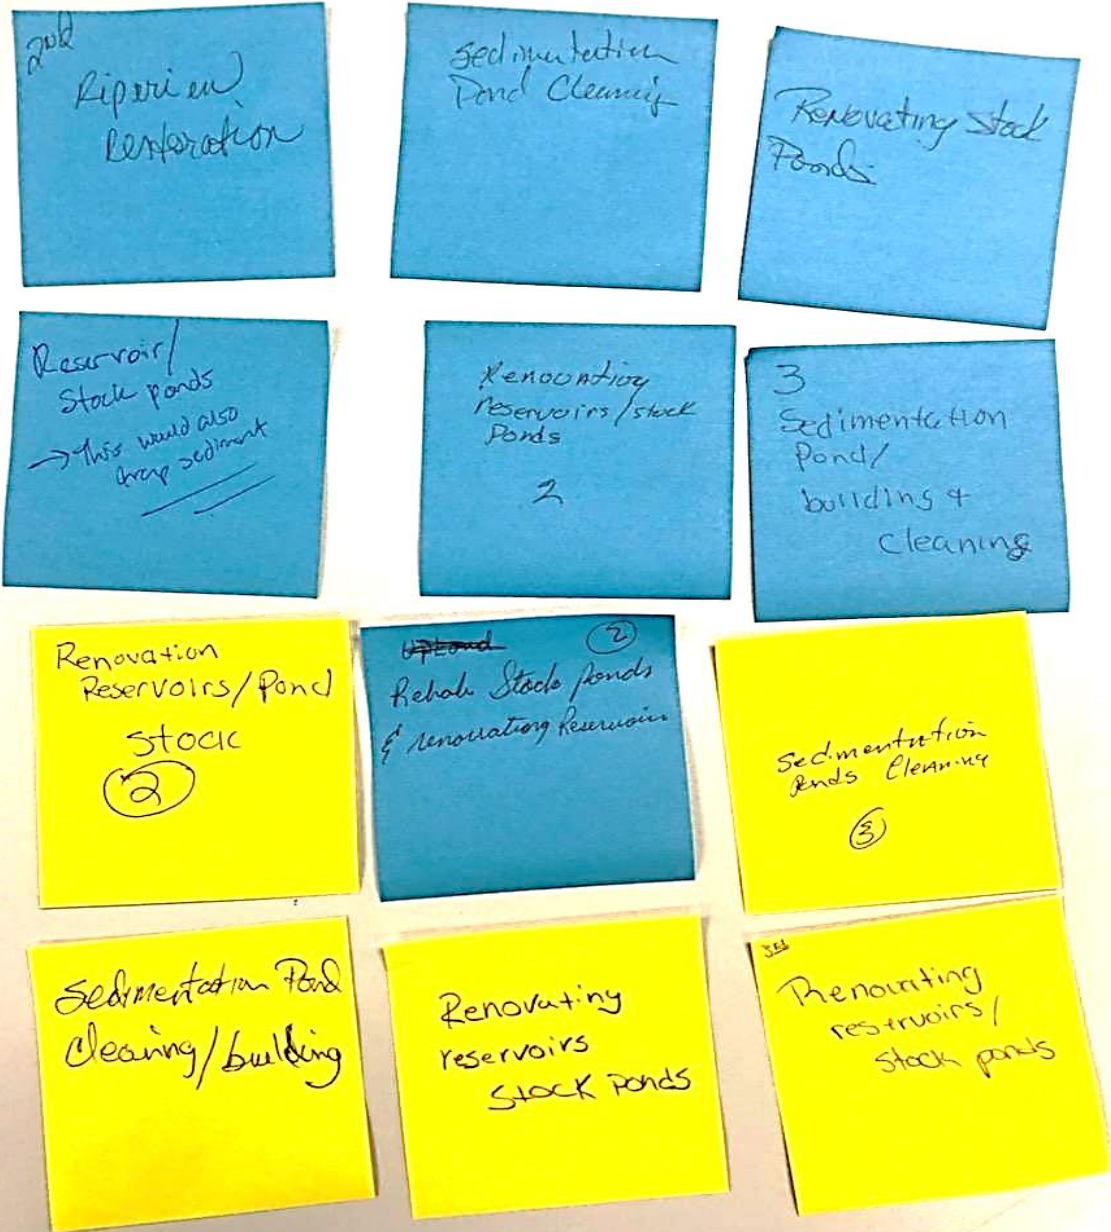 2nd
Riperien
Resteration
Sedimentation
Pond Cleaning
Renovating Stock
Ponds
Reservoir/
Stock ponds
→ This would also
trap sediment
Renovating
reservoirs/stock
Ponds
2
3
Sedimentation
Pond/
building &
Cleaning
Renovation
Reservoirs/Pond
Stock
2
UpLand
2
Rehab Stock ponds
& renovating Reservoirs
Sedimentation
Ponds Cleaning
3
Sedimentation Pond
Cleaning/building
Renovating
reservoirs
Stock Ponds
3rd
Renovating
reservoirs/
stock ponds